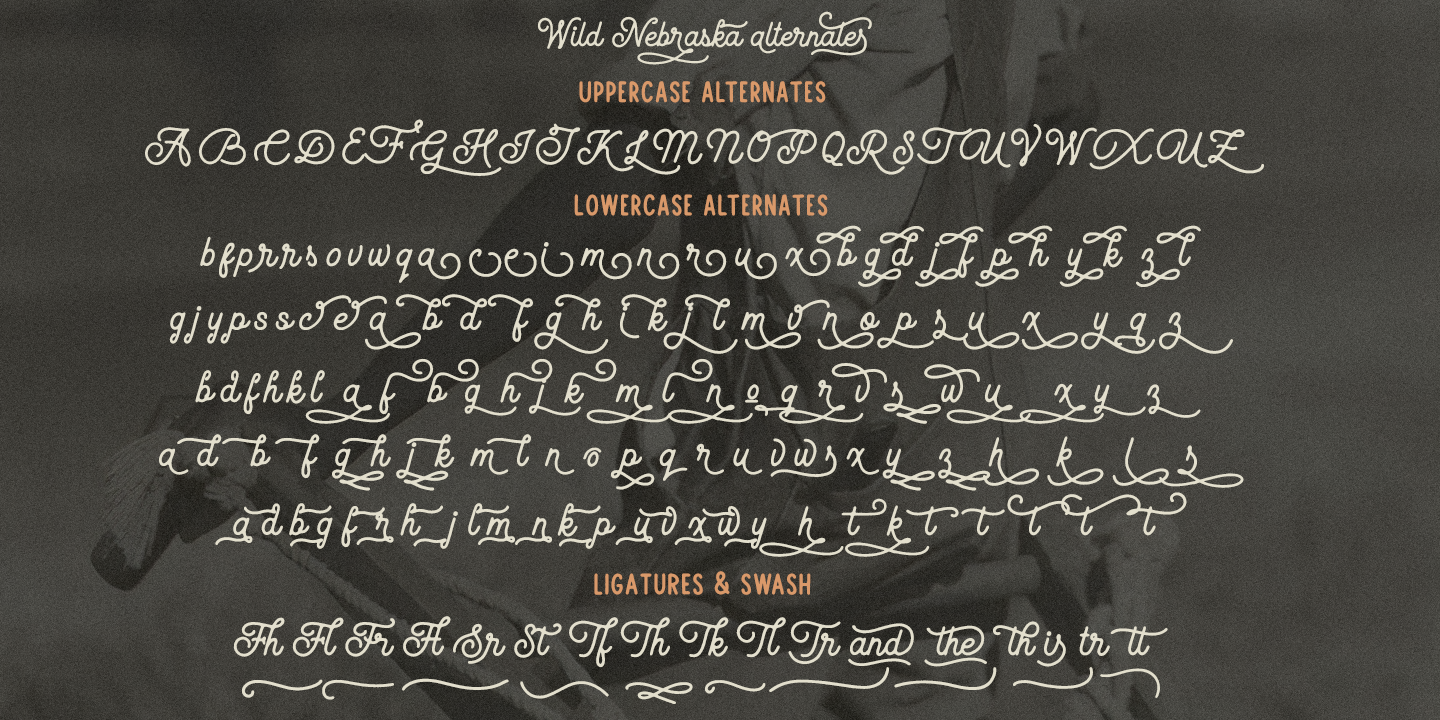 Wild Nebraska alternates
UPPERCASE ALTERNATES
A B C D E F G H I J K L M N O P Q R S T U V W X U Z
LOWERCASE ALTERNATES
b f p r r s o v w q a c e i m n r u x b g d j f p h y k z l
g j y p s s c e a b d f g h i k j l m v n o p s u x y q z
b d f h k l a f b g h j k m l n o q r v s w u x y z
a d b f g h j k m l n o p q r u v w s x y z h k l s
a d b g f r h j l m n k p u v x w y h t k t t t t t
LIGATURES & SWASH
Fh Fl Fr Ft Sr St Tf Th Tk Tl Tr and the th is tr tt